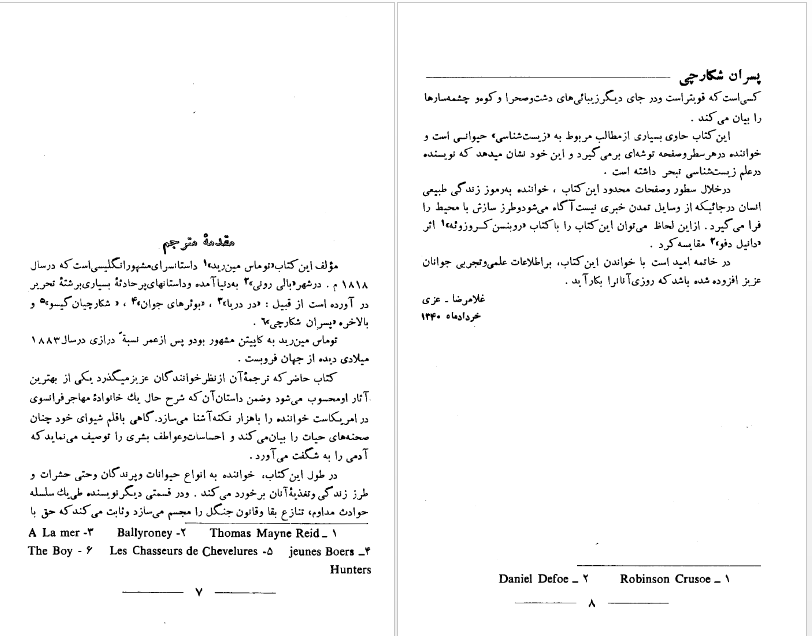 مقدمهٔ مترجم
مؤلف این کتاب «توماس مین‌رید»۱ داستانسرای مشهور انگلیسی است که درسال
۱۸۱۸ م . درشهر «بالی رونی»۲ به‌دنیا آمده و داستانهای پرحادثهٔ بسیاری برشتهٔ تحریر
در آورده است از قبیل : «در دریا»۳ ، «بوئرهای جوان»۴ ، « شکارچیان گیسو»۵ و
بالاخره «پسران شکارچی»۶ .
توماس مین‌رید به کاپیتن مشهور بود و پس از عمر نسبةً درازی درسال ۱۸۸۳
میلادی دیده از جهان فروبست .
کتاب حاضر که ترجمهٔ آن از نظر خوانندگان عزیز میگذرد یکی از بهترین
آثار او محسوب می‌شود وضمن داستان آن که شرح حال یك خانوادهٔ مهاجر فرانسوی
در امریکاست خواننده را باهزار نکته آشنا می‌سازد. گاهی باقلم شیوای خود چنان
صحنه‌های حیات را بیان می‌کند و احساسات وعواطف بشری را توصیف می‌نماید که
آدمی را به شگفت می‌آورد .
در طول این کتاب، خواننده به انواع حیوانات وپرندگان وحتی حشرات و
طرز زندگی وتغذیهٔ آنان برخورد می‌کند . ودر قسمتی دیگر نویسنده طی یك سلسله
حوادث مداوم، تنازع بقا وقانون جنگل را مجسم می‌سازد وثابت می‌کند که حق با
۱ ـ Thomas Mayne Reid ۲- Ballyroney ۳- A La mer
۴ـ jeunes Boers ۵- Les Chasseurs de Chevelures ۶ - The Boy
Hunters
۷
پسران شکارچی
کسی است که قویتر است ودر جای دیگر زیبائی‌های دشت وصحرا و کوه و چشمه‌سارها
را بیان می‌کند .
این کتاب حاوی بسیاری از مطالب مربوط به «زیست‌شناسی» حیوانی است و
خواننده درهرسطروصفحه توشه‌ای برمی‌گیرد و این خود نشان میدهد که نویسنده
درعلم زیست‌شناسی تبحر داشته است .
درخلال سطور وصفحات محدود این کتاب ، خواننده به‌رموز زندگی طبیعی
انسان درجائیکه از وسایل تمدن خبری نیست آگاه می‌شود وطرز سازش با محیط را
فرا می‌گیرد . ازاین لحاظ می‌توان این کتاب را با کتاب «روبنسن کروزوئه»۱ اثر
«دانیل دفو»۲ مقایسه کرد .
در خاتمه امید است با خواندن این کتاب، براطلاعات علمی وتجربی جوانان
عزیز افزوده شده باشد که روزی آنانرا بکار آید .
غلامرضا ـ عزی
خردادماه ۱۳۴۰
۱ ـ Robinson Crusoe ۲ ـ Daniel Defoe
۸